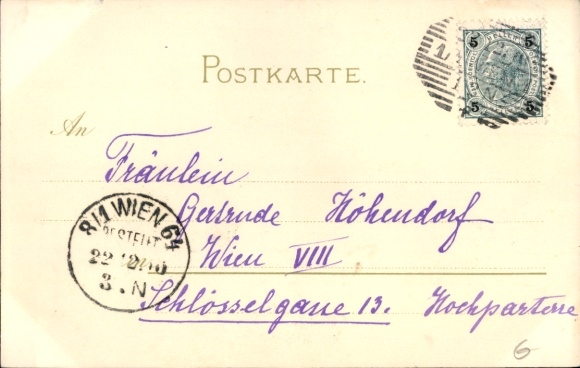 POSTKARTE.
5 5
5 5
An
Fräulein
Gertrude Höhendorf
Wien VIII
Schlösselgasse 13. Hochparterre
8/1 WIEN 64
BESTELLT
22 12
3. N
6